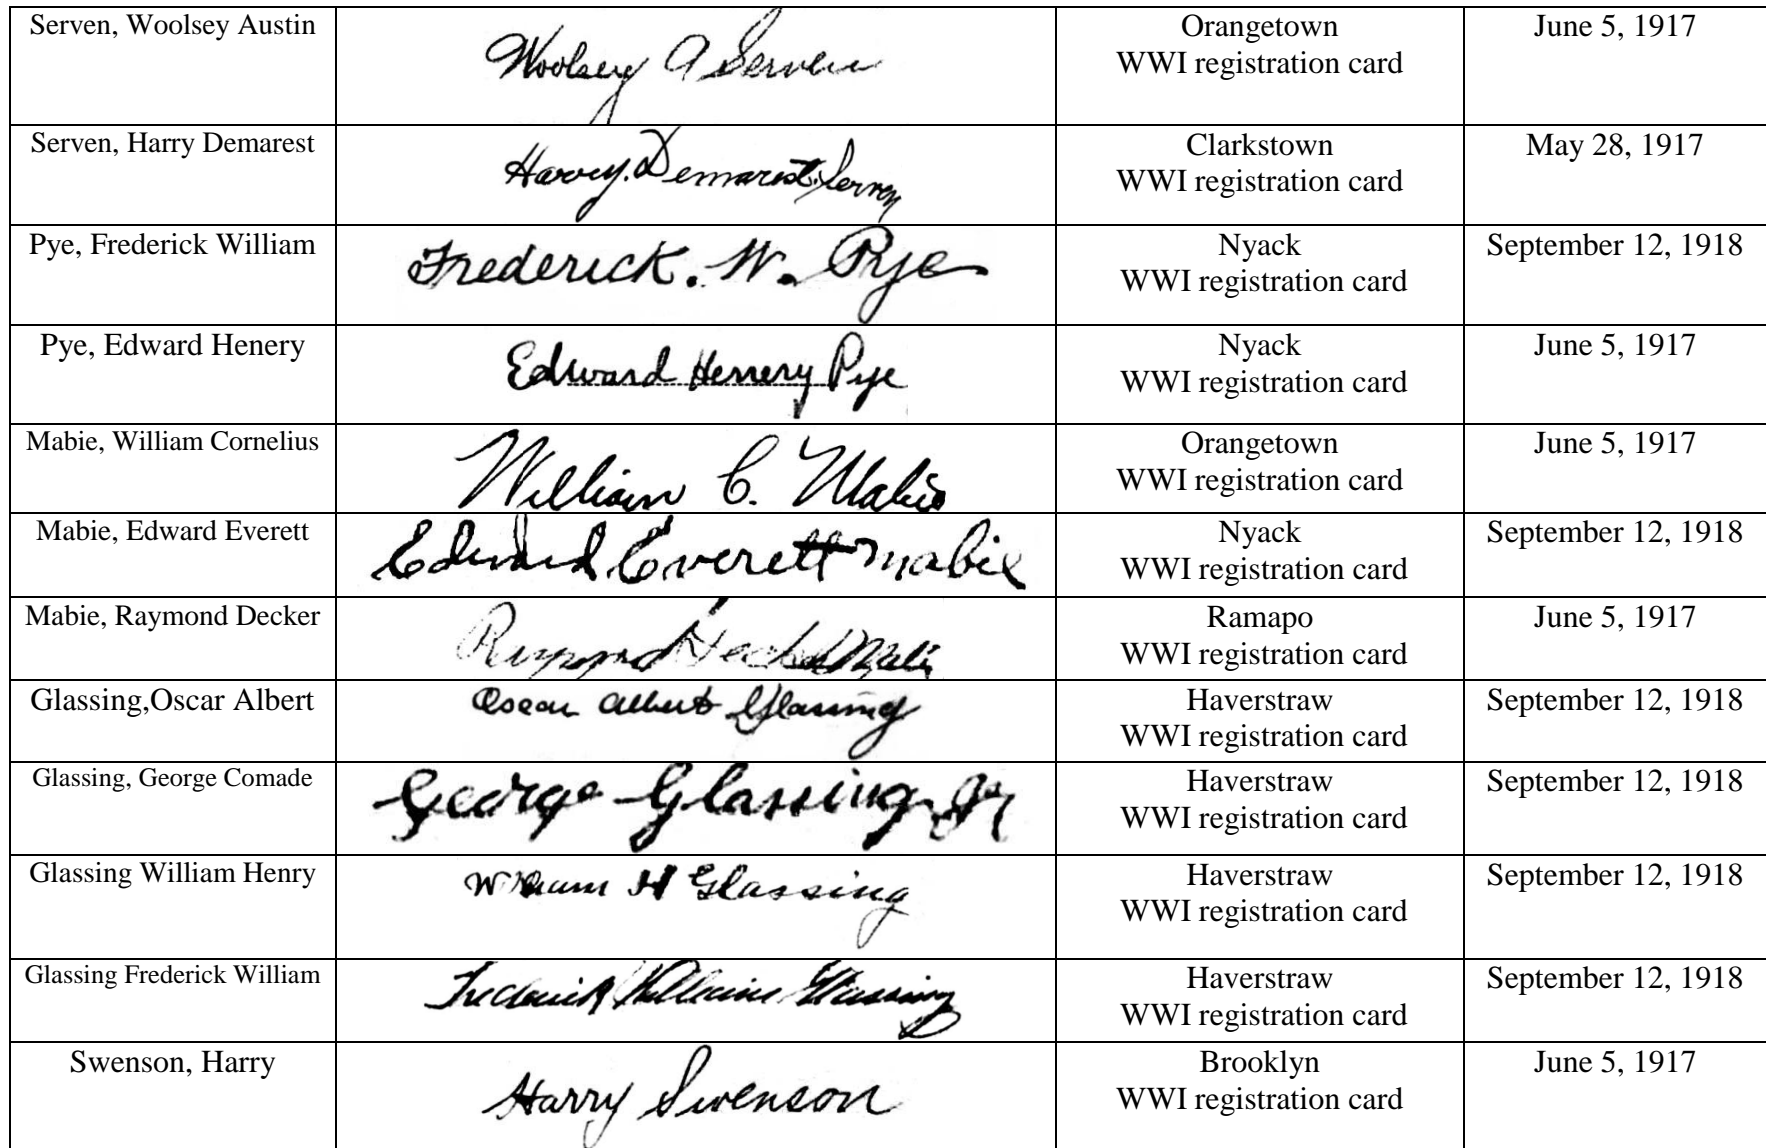 Serven, Woolsey Austin
Woolsey A Serven
Orangetown
WWI registration card
June 5, 1917
Serven, Harry Demarest
Harvey. Demarest. Serven
Clarkstown
WWI registration card
May 28, 1917
Pye, Frederick William
Frederick. W. Pye
Nyack
WWI registration card
September 12, 1918
Pye, Edward Henery
Edward Henery Pye
Nyack
WWI registration card
June 5, 1917
Mabie, William Cornelius
William C. Mabie
Orangetown
WWI registration card
June 5, 1917
Mabie, Edward Everett
Edward Everett Mabie
Nyack
WWI registration card
September 12, 1918
Mabie, Raymond Decker
Raymond Decker Mabie
Ramapo
WWI registration card
June 5, 1917
Glassing,Oscar Albert
Oscar Albert Glassing
Haverstraw
WWI registration card
September 12, 1918
Glassing, George Comade
George Glassing Jr
Haverstraw
WWI registration card
September 12, 1918
Glassing William Henry
William H Glassing
Haverstraw
WWI registration card
September 12, 1918
Glassing Frederick William
Frederick William Glassing
Haverstraw
WWI registration card
September 12, 1918
Swenson, Harry
Harry Swenson
Brooklyn
WWI registration card
June 5, 1917